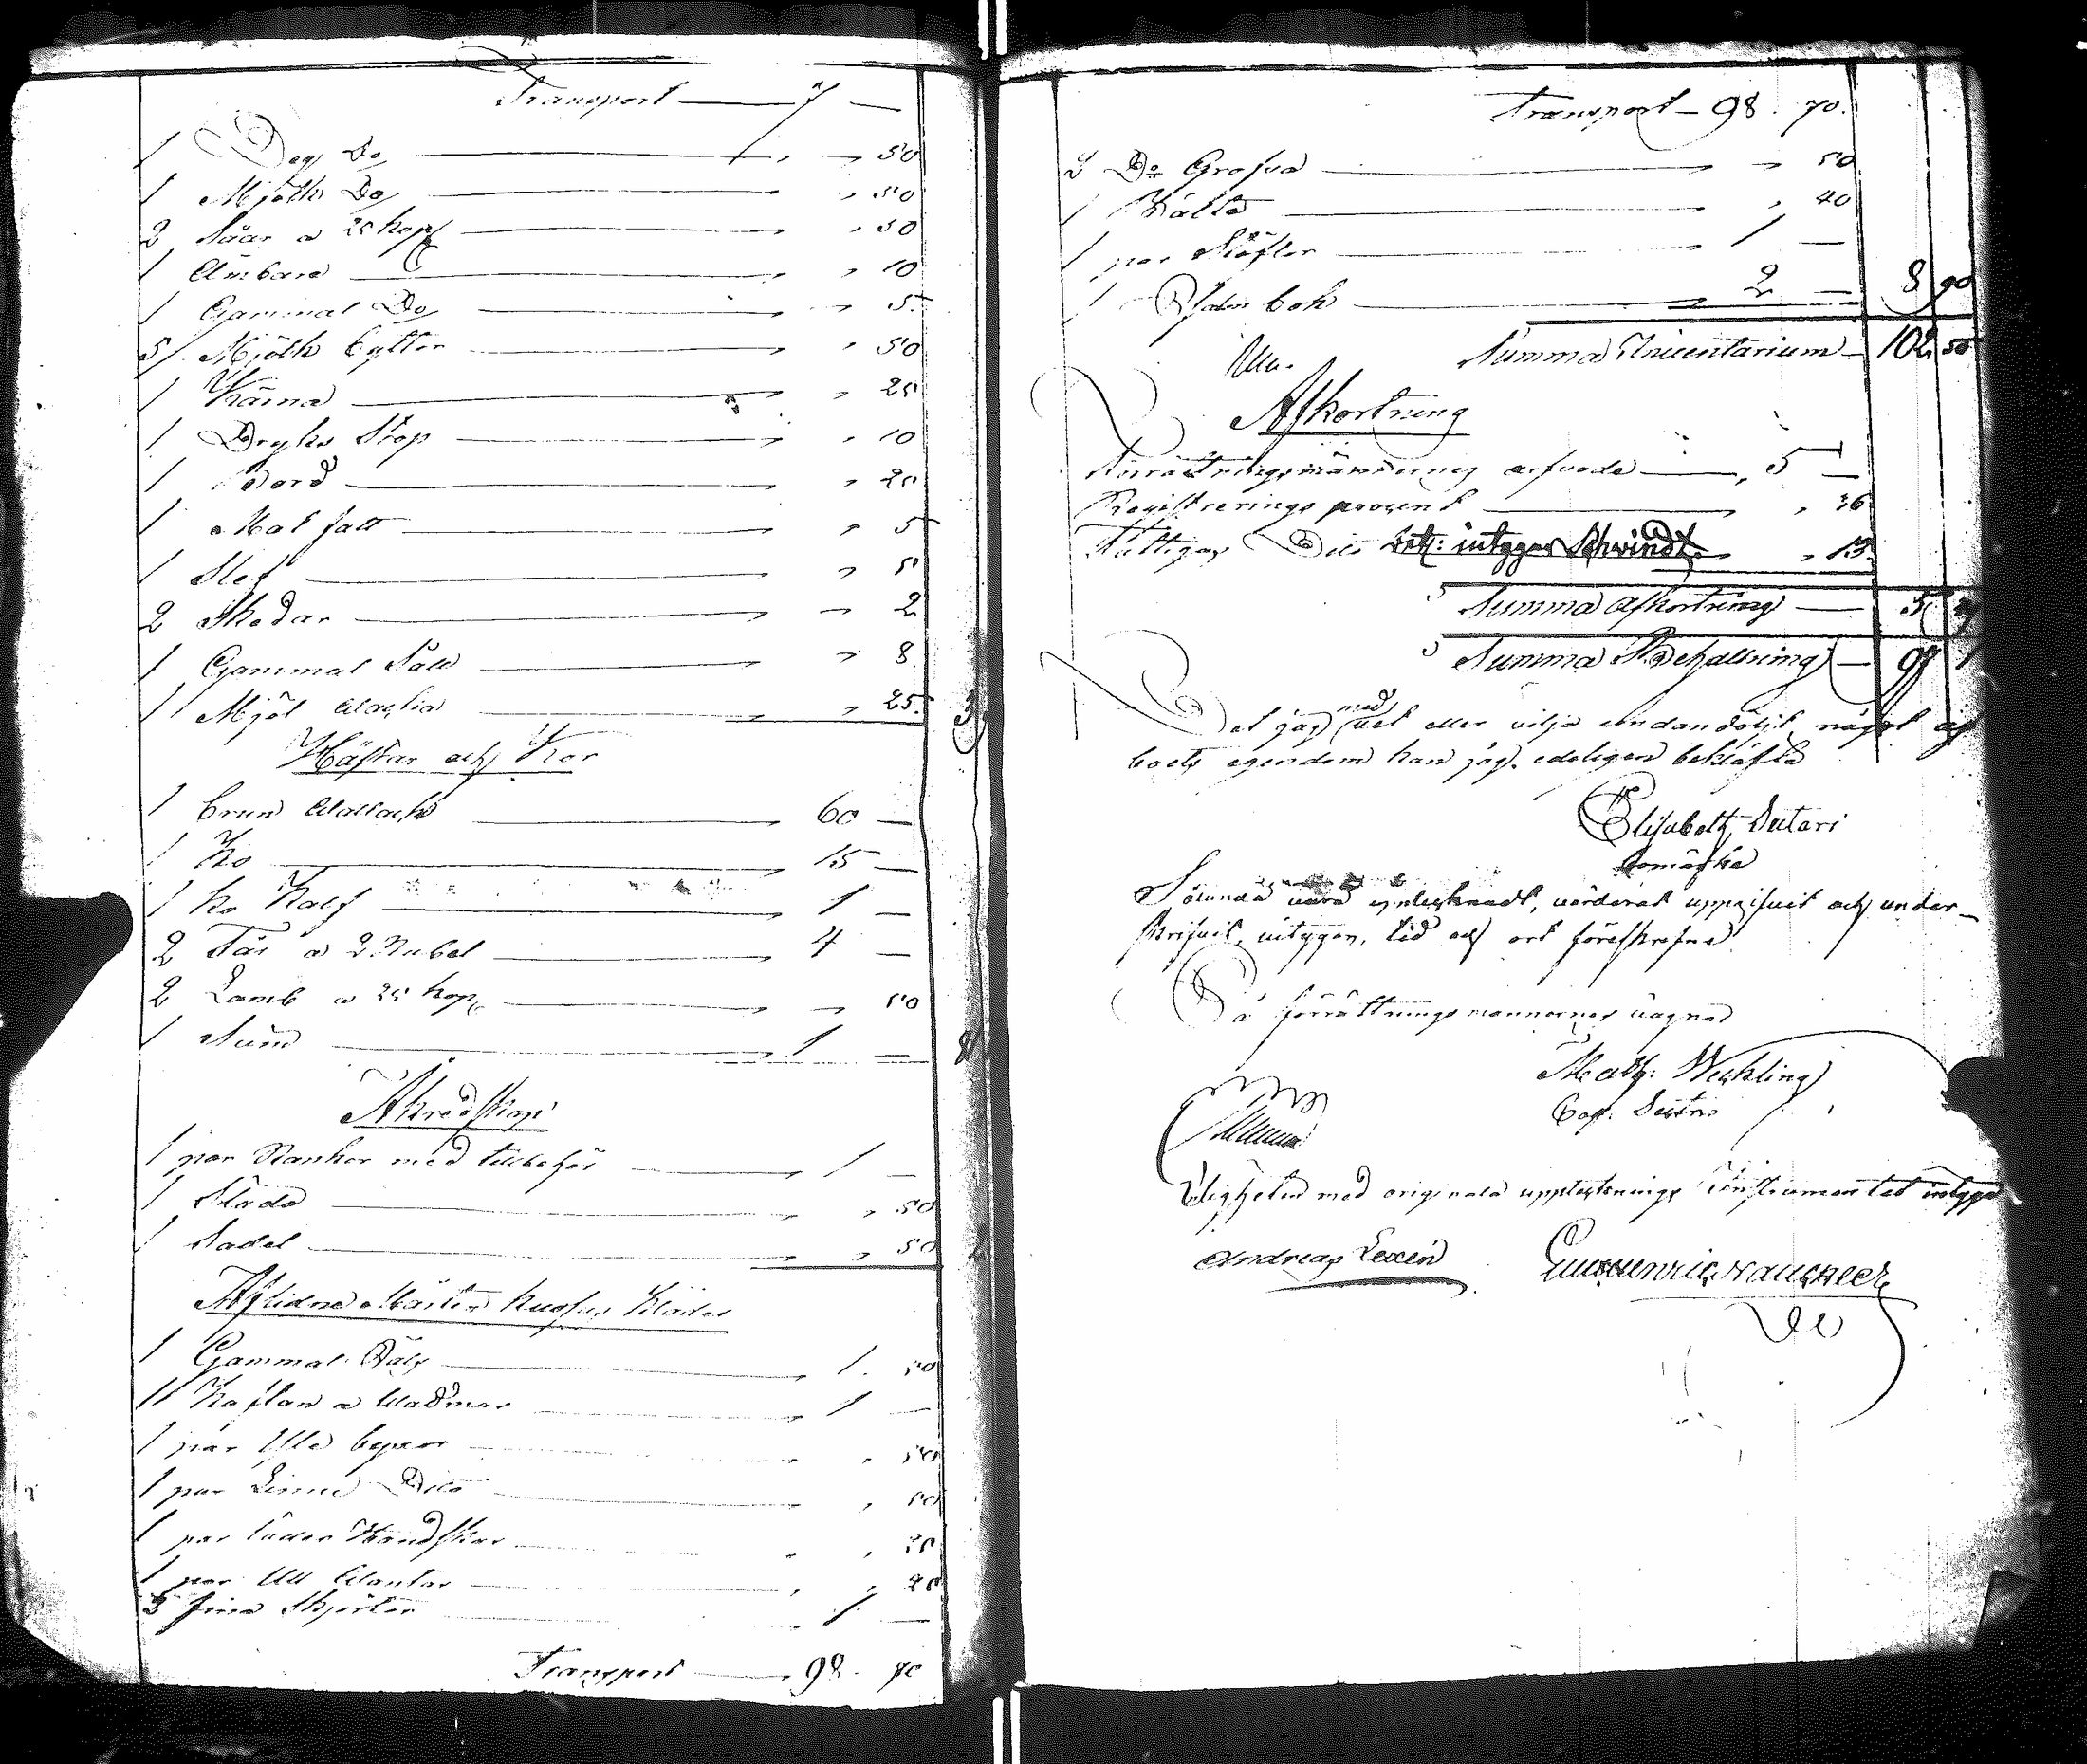 Transport — 7 —
1 Deg Do — 50
1 Mjölk Do — 50
2 Såar a 25 kop — 50
1 Ämbare — 10
1 Gammal Do — 5
5 Mjölk byttor — 50
1 Kärna — 25
1 Dryks Stop — 10
1 Bord — 20
1 Mat fatt — 5
1 Slef — 5
2 Skedar — 2
1 Gammal Såll — 8
1 Mjöl — 25. 3
Hästar och Kor
1 brun Wallack — 60 —
1 Ko — 15 —
1 Ko Kalf — 1 —
2 Får a 2 Rubel — 4 —
2 Lamb a 25 kop — 50
1 Suin — 1 —
Åkredskap
1 par Kankor med tillbehör — 1 —
1 Släde — 50
1 Sadel — 50
Aflidne Mårten Kläder
1 Gammal Päls — 1. 50
1 Kaftan a Wadmar — 1 —
1 par Ylle byxor — 50
1 par Linne Dito — 50
1 par läder Handskar — 20
1 par Ull Wantar — 20
3 fina Skjortor — 1 —
Transport — 98. 70
Transport — 98. 70.
2 Do Grofva — 50
1 Bälte — 40
1 par Stöflor — 1 —
1 Psalm bok — 2 — 8 90
Summa Inventarium — 102 50
Afkortning
Förrättningsmännernes arfvode — 5 —
Registrerings procent — 36
Fattigas Dito intygar Schvindt — 13
Summa afkortning — 5
Summa Behållning — 97 1
Det jag med vet eller vilja undandöljt något af
boets egendom kan jag edeligen bekräfta
Elisabeth Suutari
bomärke
Sålunda vara uppteknadt, värderat uppskrifvit och under-
skrifvit, intygar, tid och ort föreskrefne
På förrättnings mannernes vägnar
Math: Weckling
Cap: Sustri
Rigtigheten med originala uppteknings Instrumentet intyga
Andreas Lexén